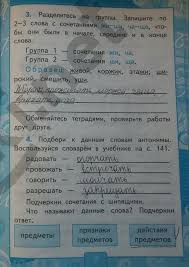 3. Разделитесь на группы. Запишите по
2–3 слова с сочетаниями жи-ши, ча-ща, что-
бы они были в начале, середине и в конце
слова.
Группа 1 — сочетания жи, ча.
Группа 2 — сочетания ши, ща.
Образец: живой, коржи, этажи; ши-
рокий, смешить, уши.
Обменяйтесь тетрадями, проверьте работы
друг друга.
4. Подбери к данным словам антонимы.
Воспользуйся словарём в учебнике на с. 141.
радовать — огорчать
провожать — встречать
говорить — молчать
разрешать — запрещать
Подчеркни сочетания с шипящими.
Что называют данные слова? Подчеркни
ответ.
предметы
признаки
предметов
действия
предметов